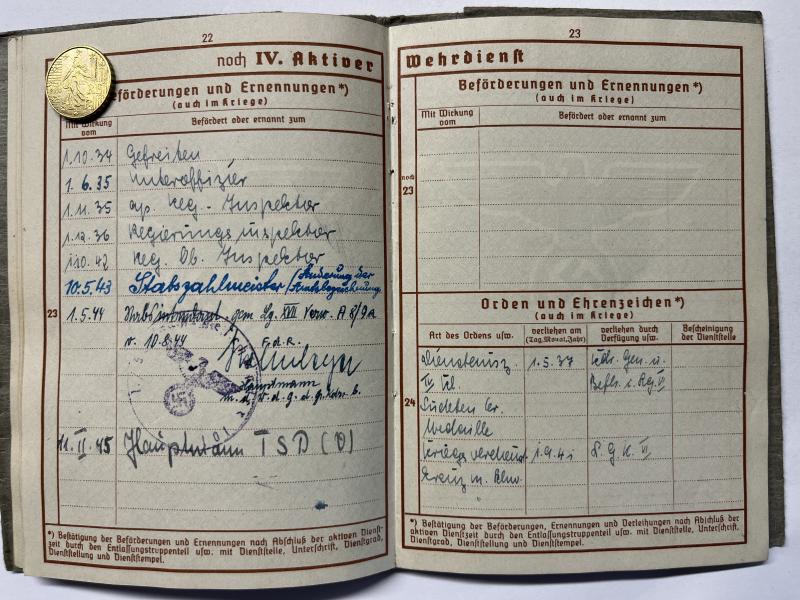 22
noch IV. Aktiver
Beförderungen und Ernennungen*)
(auch im Kriege)
Mit Wirkung vom
Befördert oder ernannt zum
1.10.34 Gefreiten
1.6.35 Unteroffizier
1.11.35 ap. Reg.-Inspektor
1.12.36 Regierungsinspektor
1.10.42 Reg. Ob. Inspektor
10.5.43 Stabszahlmeister (Änderung der Amtsbezeichnung
23
1.5.44 gem. XVII Verw. A 8/9a
v. 10.8.44
F.d.R.
Hauptmann
m.d.W.d.G.d.
11.II.45 Hauptmann TSD (V)
*) Bestätigung der Beförderungen und Ernennungen nach Abschluß der aktiven Dienst-
zeit durch den Entlassungstruppenteil usw. mit Dienststelle, Unterschrift, Dienstgrad,
Dienststellung und Dienststempel.
23
Wehrdienst
Beförderungen und Ernennungen*)
(auch im Kriege)
Mit Wirkung vom
Befördert oder ernannt zum
noch
23
Orden und Ehrenzeichen*)
(auch im Kriege)
Art des Ordens usw.
verliehen am
(Tag, Monat, Jahr)
verliehen durch
Verfügung usw.
Bescheinigung
der Dienststelle
24
Dienstausz. 1.5.37 Kdr. Gen. u.
IV. Kl. Befh. i.
Sudeten Er.
Medaille
Kriegsverdienst 1.9.41
Kreuz m. Schw.
*) Bestätigung der Beförderungen, Ernennungen und Verleihungen nach Abschluß der
aktiven Dienstzeit durch den Entlassungstruppenteil usw. mit Dienststelle, Unterschrift,
Dienstgrad, Dienststellung und Dienststempel.